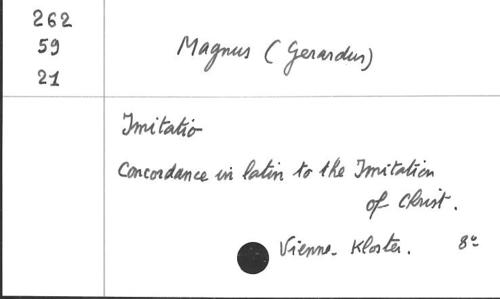 262
59
21
Magnus (Gerardus)
Imitatio
Concordance in latin to the Imitation
of Christ.
Vienne. Kloster. 8°